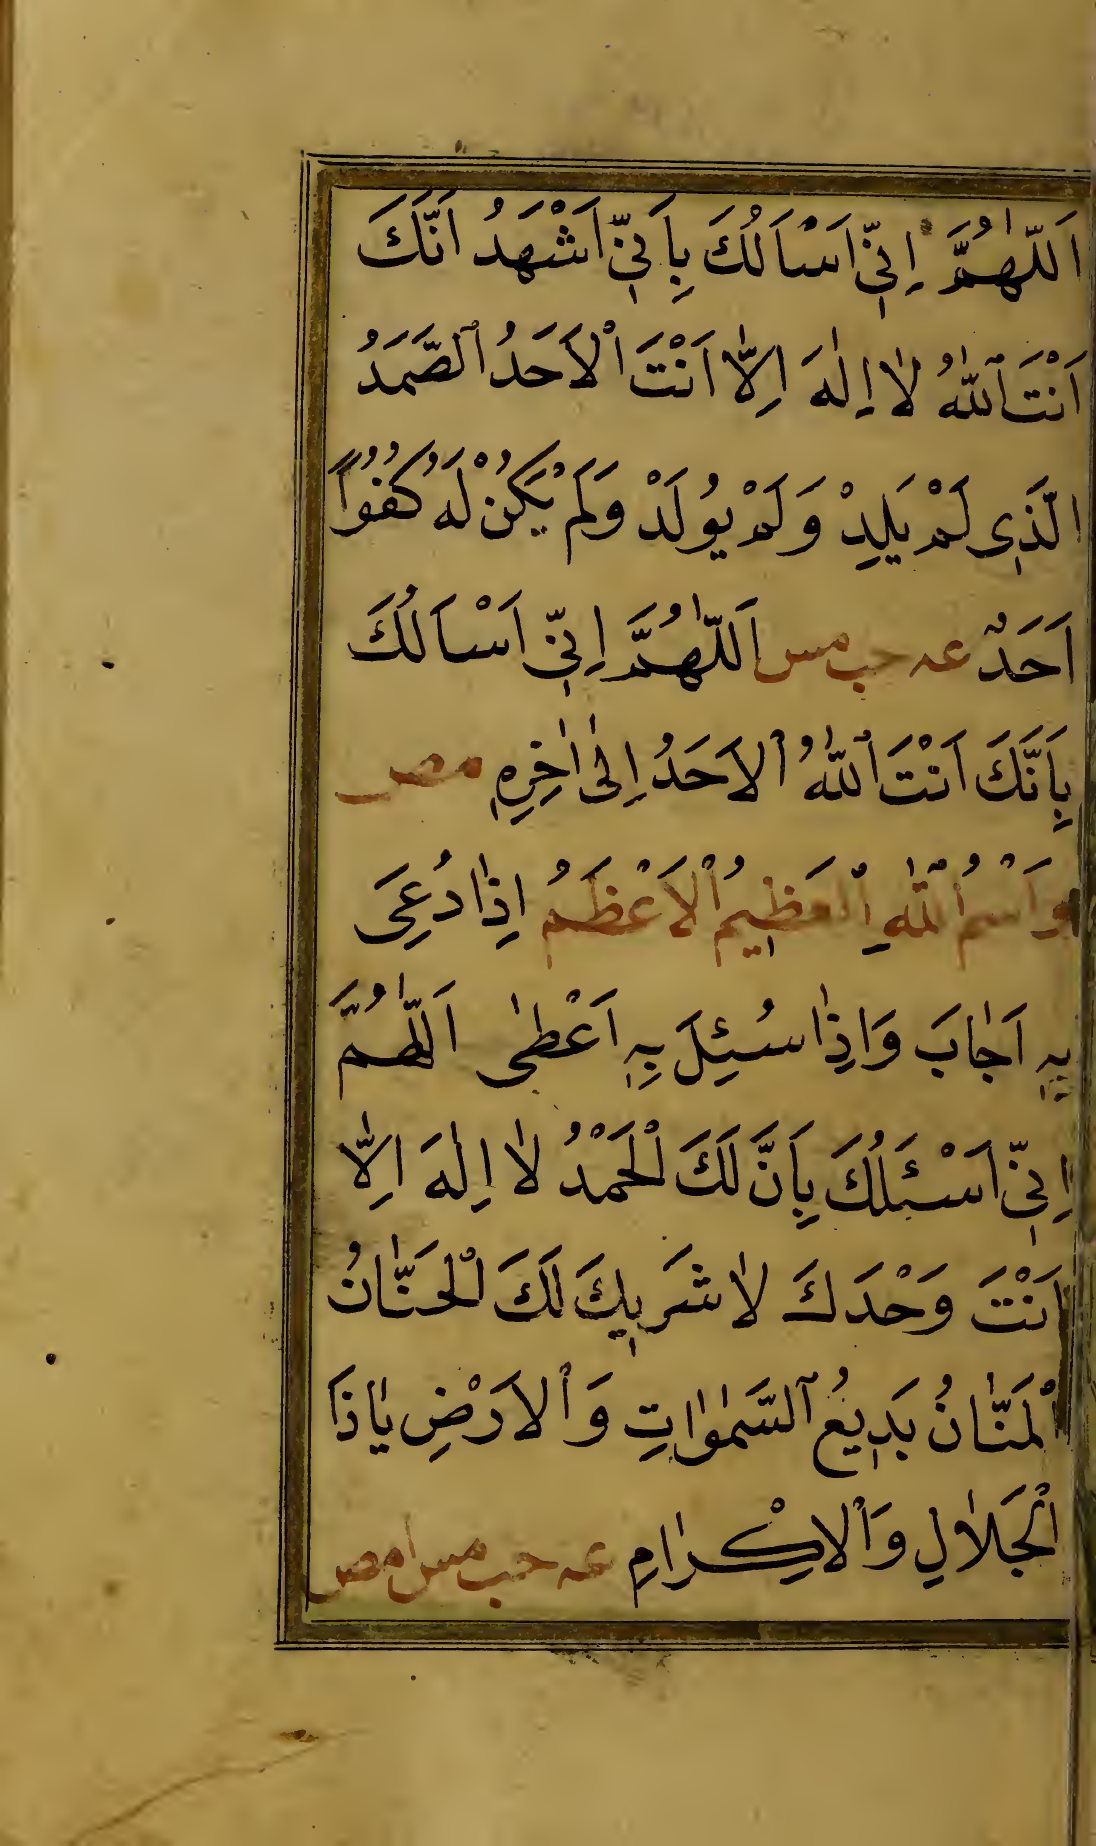 اَللّٰهُمَّ اِنّٖی اَسْاَلُكَ بِاَنّٖی اَشْهَدُ اَنَّكَ
اَنْتَ ٱللّٰهُ لٰا اِلٰهَ اِلّٰا اَنْتَ ٱلْاَحَدُ ٱلصَّمَدُ
الَّذٖی لَمْ یَلِدْ وَلَمْ یُولَدْ وَلَمْ یَكُنْ لَهُ كُفُوًا
اَحَدٌ عه حب مس اَللّٰهُمَّ اِنّٖی اَسْاَلُكَ
بِاَنَّكَ اَنْتَ ٱللّٰهُ ٱلْاَحَدُ اِلٰی اٰخِرِهٖ مص
وَاسْمُ ٱللّٰهِ ٱلْعَظٖیمُ ٱلْاَعْظَمُ اِذٰا دُعِیَ
بِهٖ اَجٰابَ وَاِذٰا سُئِلَ بِهٖ اَعْطٰی اَللّٰهُمَّ
اِنّٖی اَسْئَلُكَ بِاَنَّ لَكَ لْحَمْدُ لٰا اِلٰهَ اِلّٰا
اَنْتَ وَحْدَكَ لٰا شَرٖیكَ لَكَ لْحَنّٰانُ
ٱلْمَنّٰانُ بَدٖیعُ ٱلسَّمٰوٰاتِ وَٱلْاَرْضِ یٰا ذَا
ٱلْجَلٰالِ وَٱلْاِكْرٰامِ عه حب مس ا مص